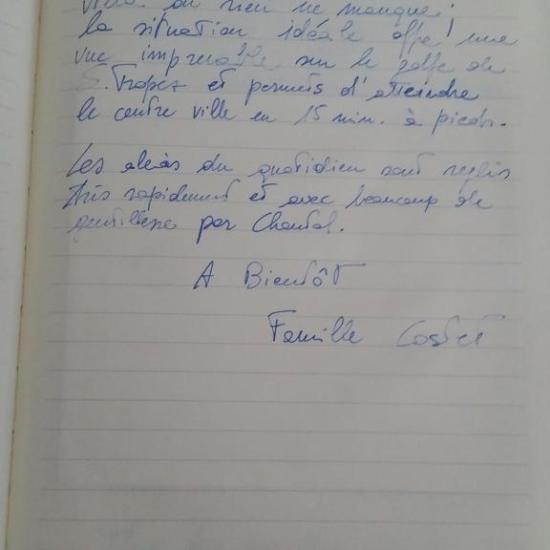 où rien ne manque !
la situation idéale offre une
vue imprenable sur le golfe de
S. Tropez et permets d'atteindre
le centre ville en 15 min. à pieds.
Les aléas du quotidien sont réglés
très rapidement et avec beaucoup de
gentillesse par Chantal.
A Bientôt
Famille